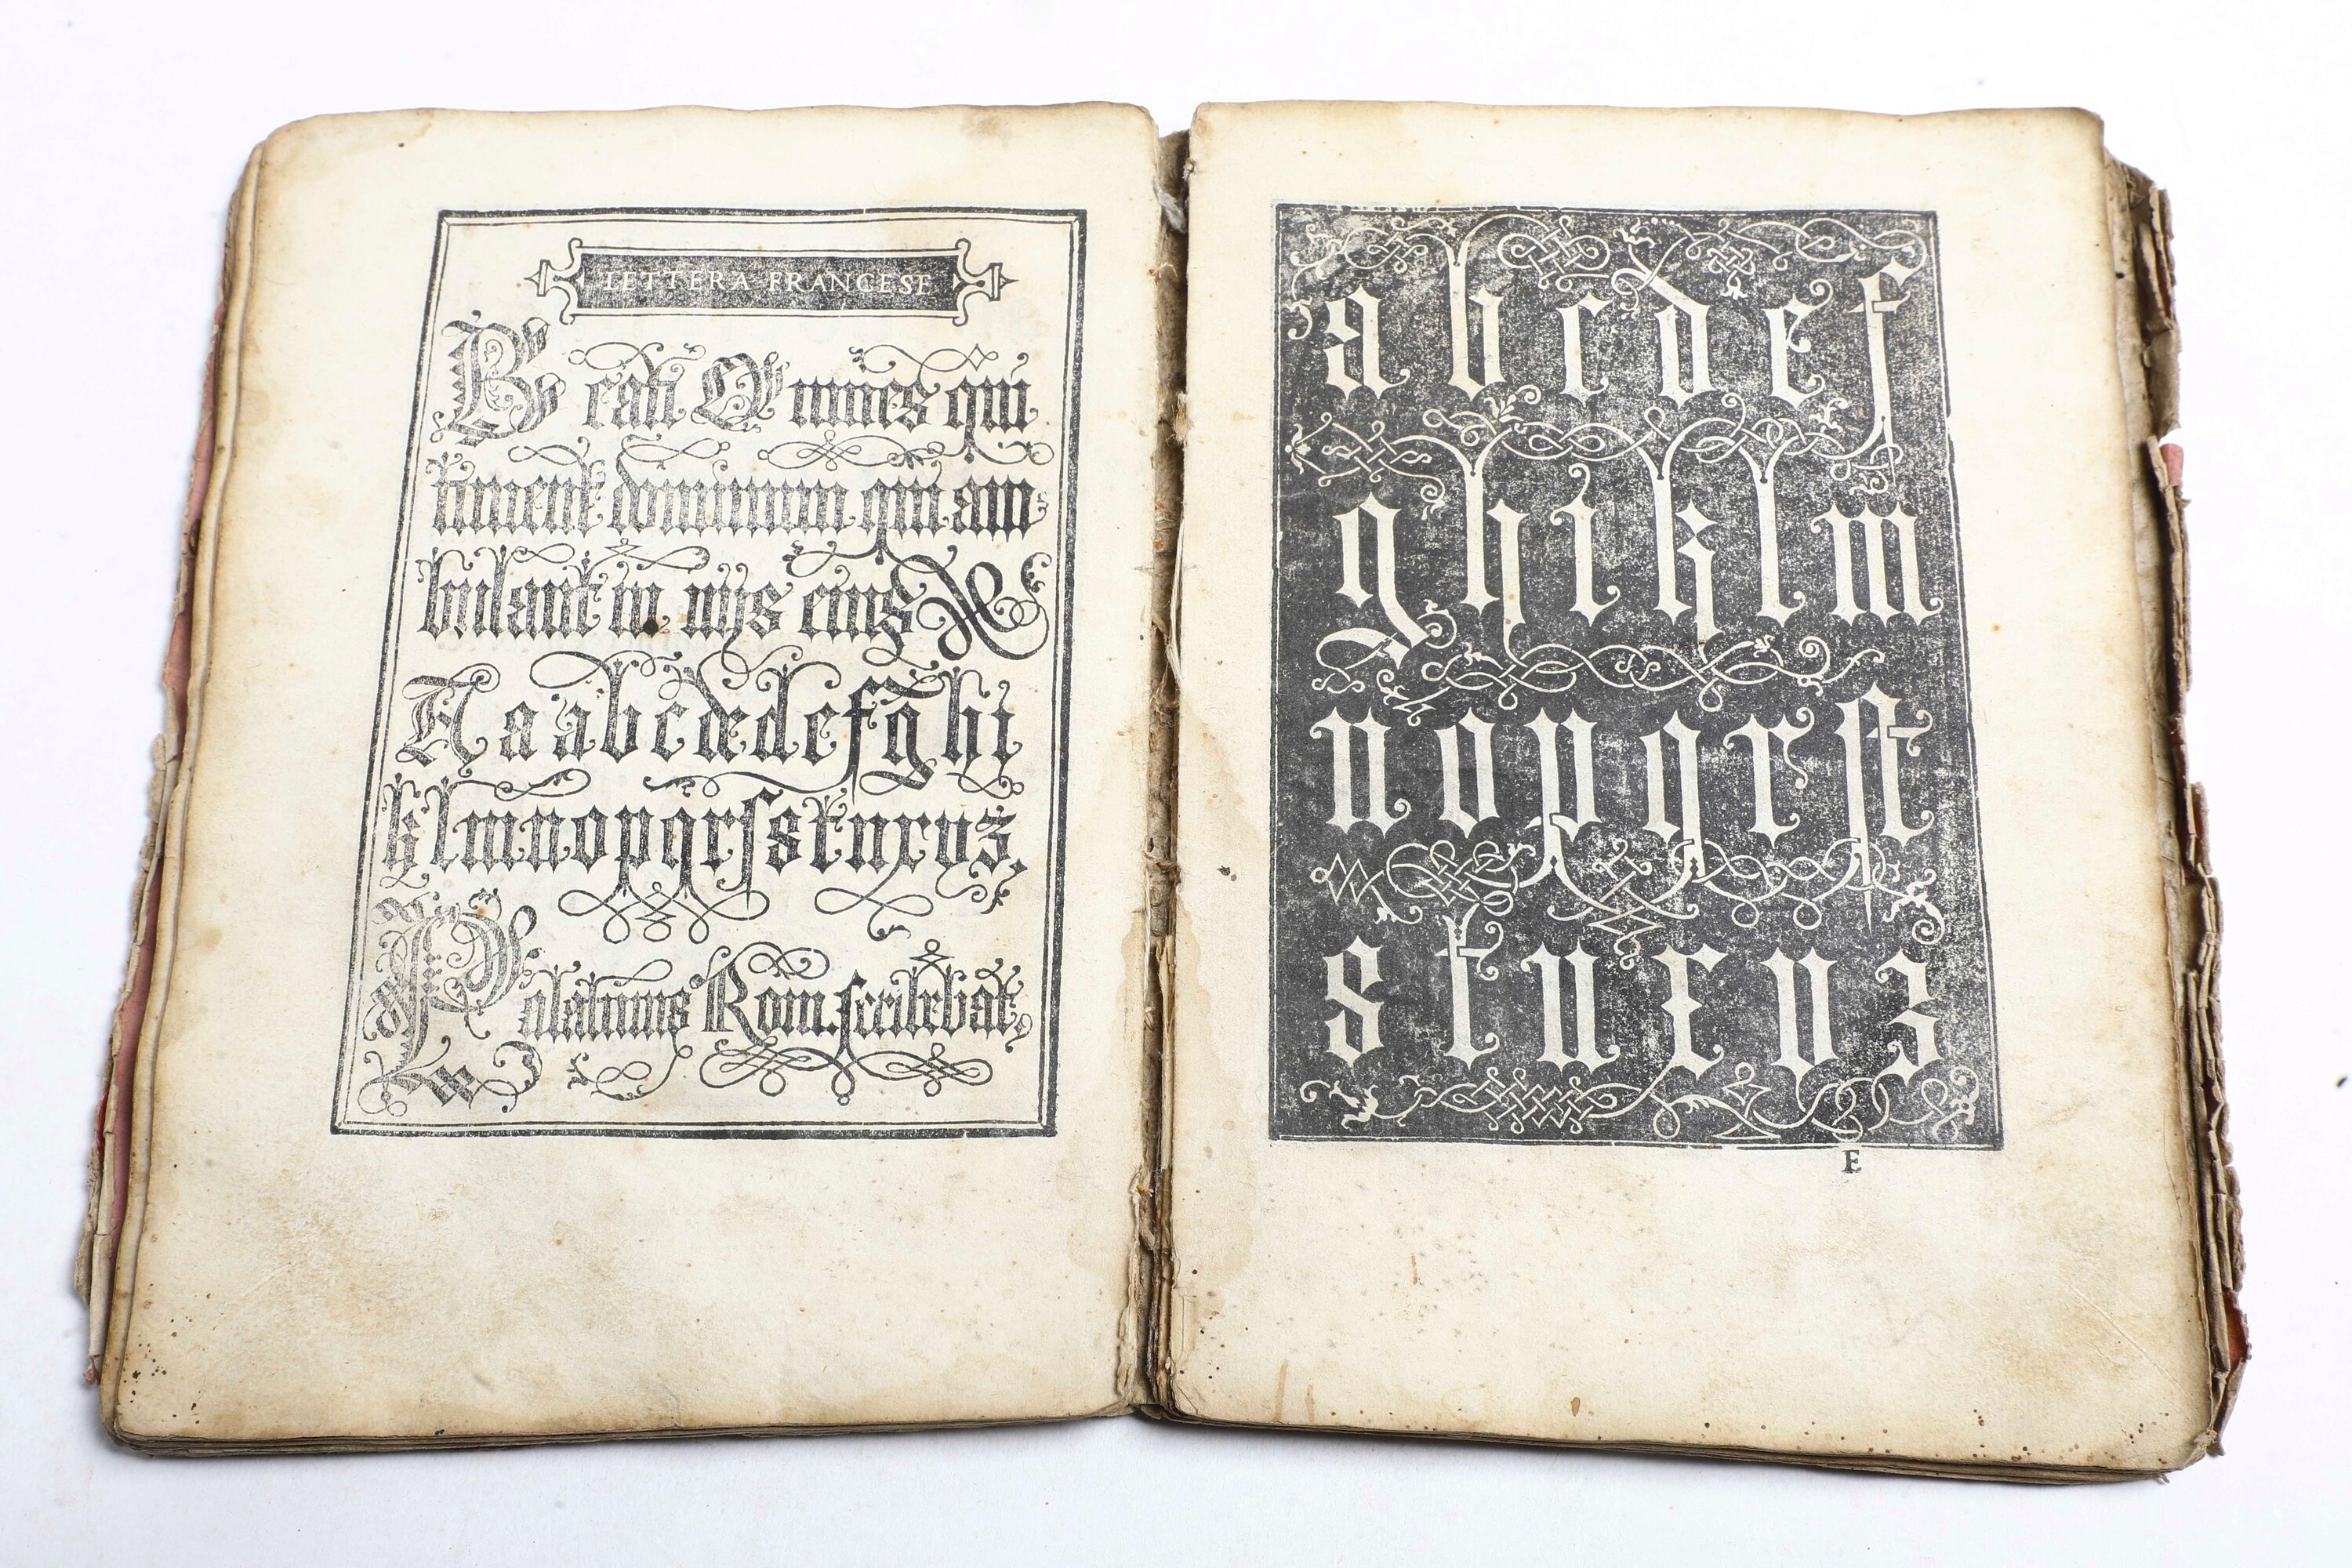 LETTERA FRANCESE
Beati Omnes qui
timent dominum qui am
bulant in uijs eius &
A a a b c d d e f g h i
k l m n o p q r ſ s t u x v z,
Palatinus Rom. ſcribebat,
a b c d e f
g h i k l m
n o p q r ſt
s t u x v z
E